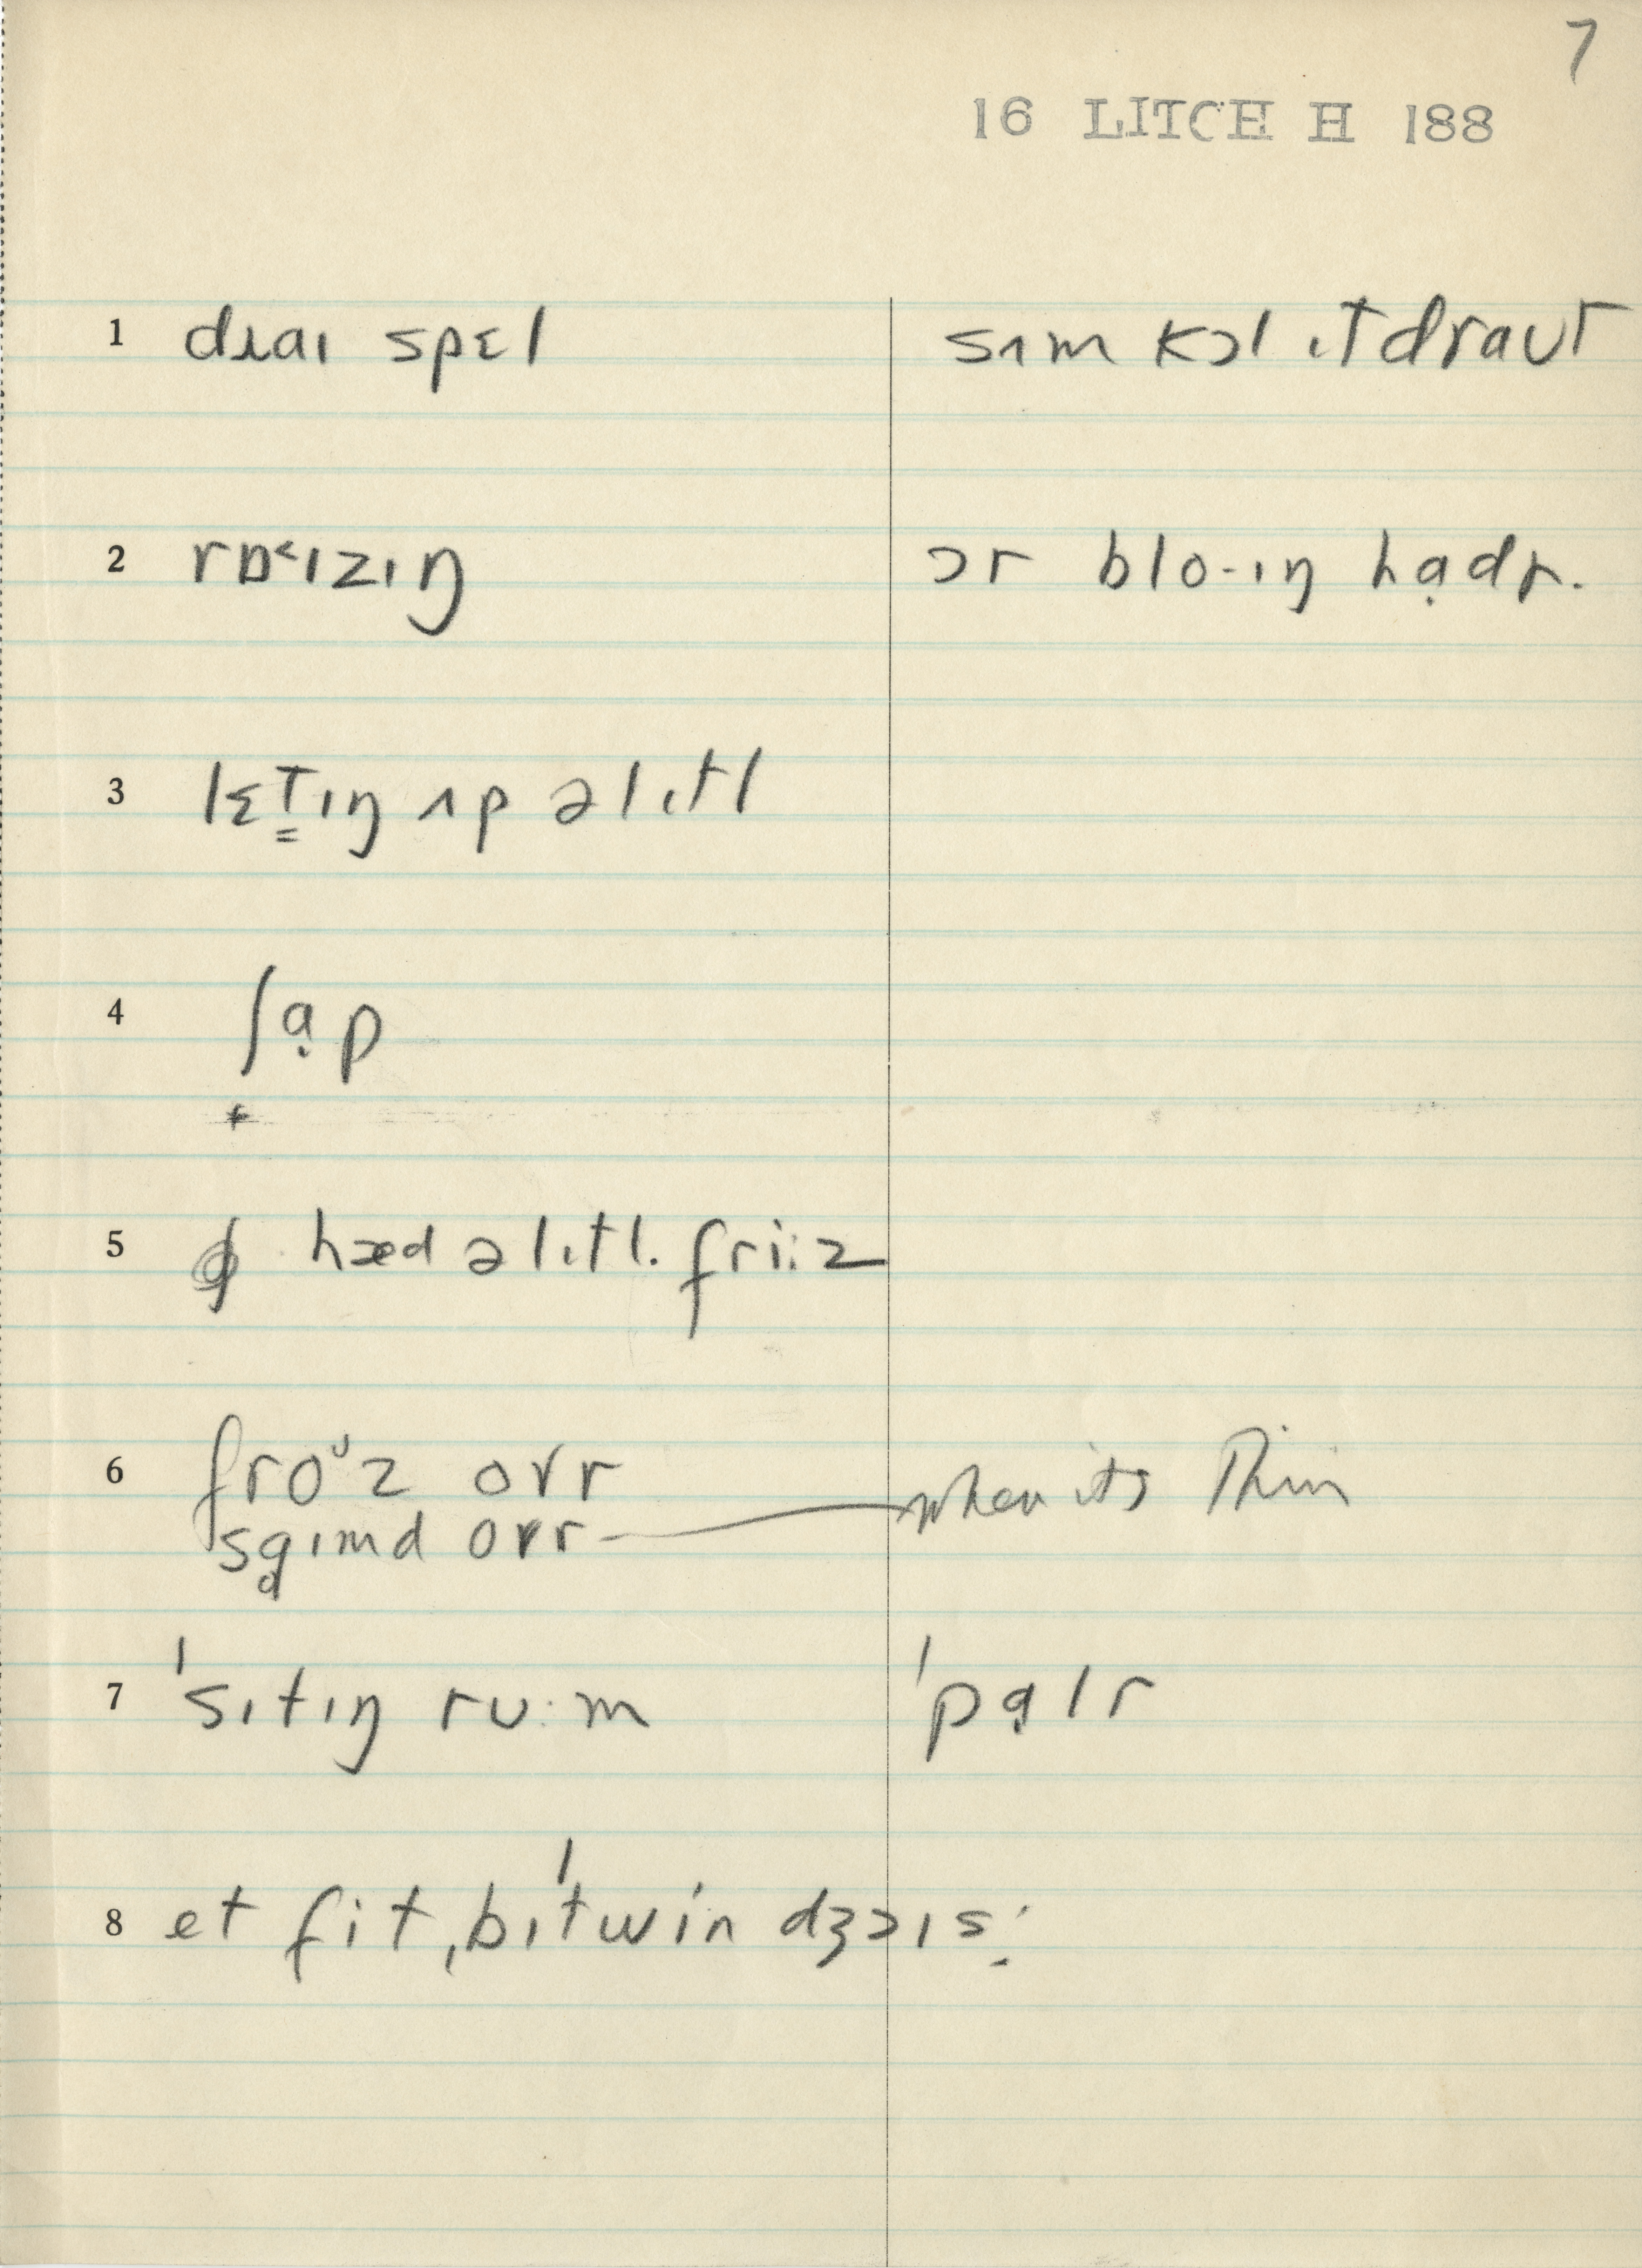 7
16 LITCH H 188
1 dɹaɪ spɛl sʌm kɔl ɪt draut
2 rɒ˂ɪzɪŋ ɔr blo-ɪŋ hạdɚ.
3 lɛt̳ɪŋ ʌp ə lɪtl
4 ʃạp
+
5 hæd ə lɪtl. fri:z
6 froᶷz ovr when its thin
sgɪmd ovr
7 'sɪtɪŋ ru·m 'pạlr
8 et fit ˌbɪ'twin dʒɔɪs: